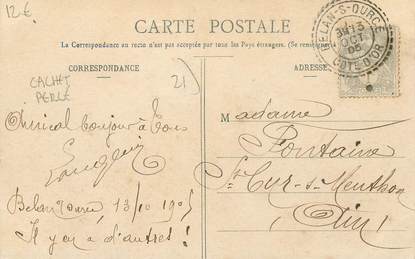 12€
CARTE POSTALE
La Correspondance au recto n'est pas acceptée par tous les Pays étrangers.
CORRESPONDANCE
ADRESSE
BELAN-S-OURCE
13
OCT
05
COTE D'OR
CACHET
PERLÉ
21
Amical bonjour à tous
Belan 13/10 1905
Il y en a d'autres !
Madame
Fontaine
St Cyr-s-Menthon
(Ain)